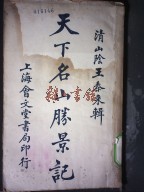 清山陰王泰來輯
天下名山勝景記
上海會文堂書局印行